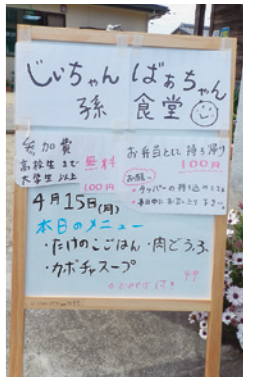 じいちゃん ばぁちゃん
孫 食堂
参加費
高校生まで 無料
大学生以上 100円
お弁当として持ち帰り
100円
お願い
・タッパーの持ち込み
4月15日(月)
本日のメニュー
・たけのこごはん・肉どうふ
・カボチャスープ